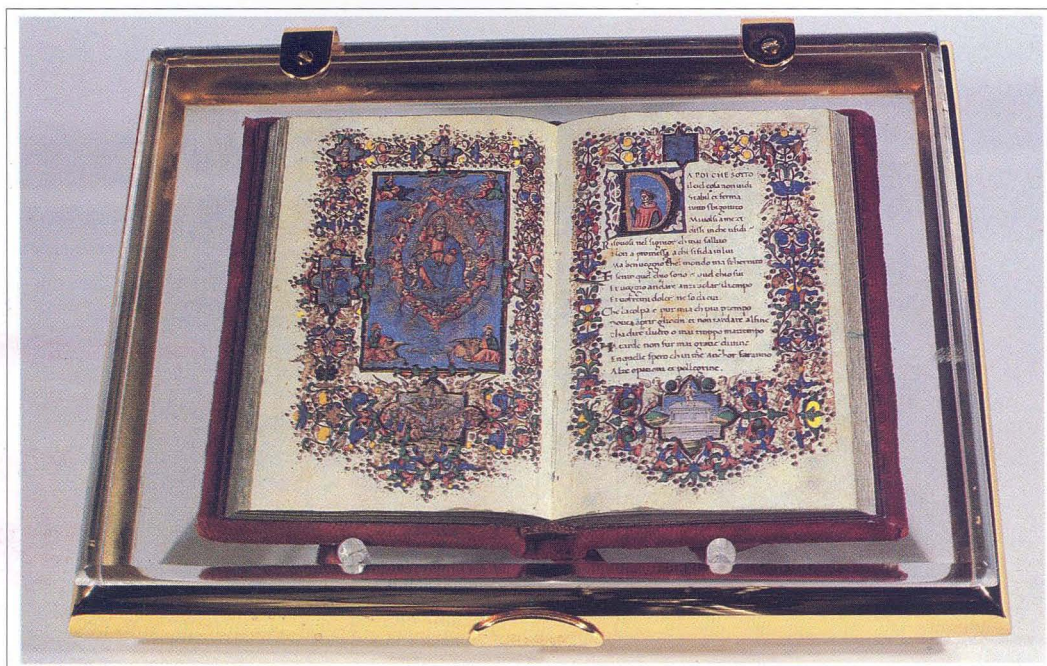 DA POI CHE SOTTO
il ciel cosa non uidi
stabil et ferma
tutto sbigottito
Mi uolsi a me et
dissi in che ti fidi
Risposi nel signor che mai fallito
Non a promessa a chi si fida in lui
Ma ben ueggio chel mondo ma schernito
Et sento quel chio sono et quel chio fui
Et ueggio andare anzi uolar il tempo
Et uorremi doler ne so da cui
Che la colpa e pur mia che piu per tempo
douea aprir gliocchi et non tardare al fine
cha dire il uero o mai troppo mattempo
tarde non fur mai gratie diuine
En quelle spero chen me anchor faranno
Alte operationi et pellegrine.